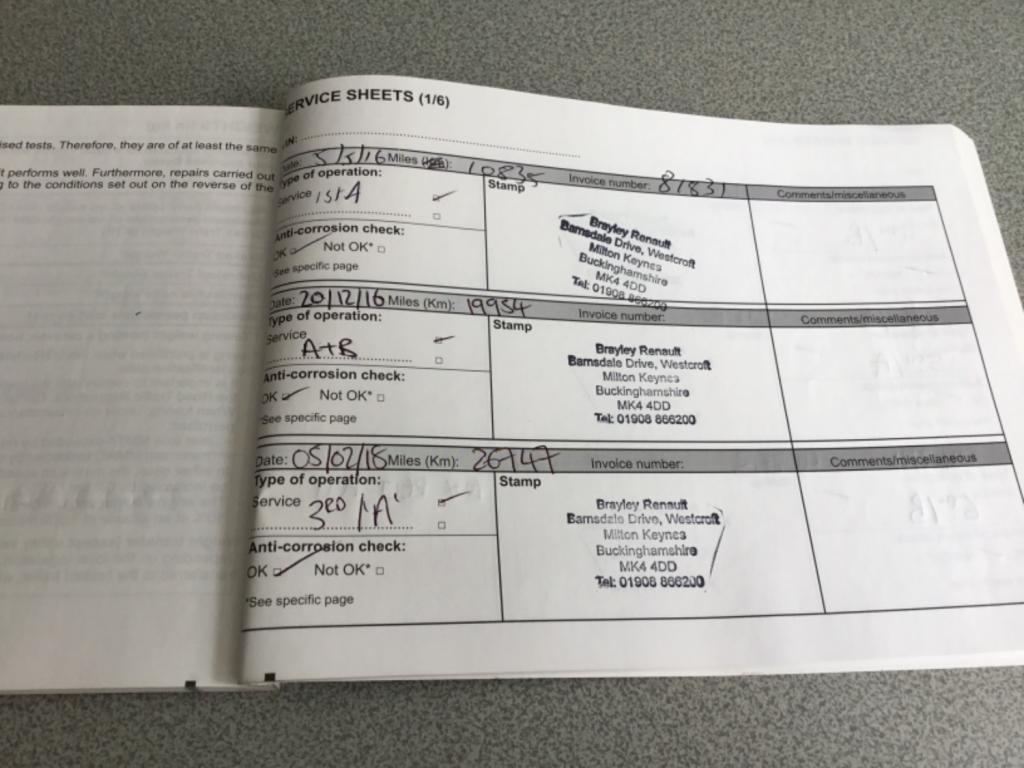 ised tests. Therefore, they are of at least the same
t performs well. Furthermore, repairs carried out
g to the conditions set out on the reverse of the
ERVICE SHEETS (1/6)
IN:
Date: 5/5/16 Miles (Km): 10835 Invoice number: 81831 Comments/miscellaneous
Type of operation:
Stamp
Service 1st A
Anti-corrosion check:
OK Not OK*
See specific page
Brayley Renault
Barnsdale Drive, Westcroft
Milton Keynes
Buckinghamshire
MK4 4DD
Tel: 01908 866200
Date: 20/12/16 Miles (Km): 19954 Invoice number: Comments/miscellaneous
Type of operation:
Stamp
Service
A+B
Anti-corrosion check:
OK Not OK*
*See specific page
Brayley Renault
Barnsdale Drive, Westcroft
Milton Keynes
Buckinghamshire
MK4 4DD
Tel: 01908 866200
Date: 05/02/18 Miles (Km): 26747 Invoice number: Comments/miscellaneous
Type of operation:
Stamp
Service
3RD 'A'
Anti-corrosion check:
OK Not OK*
*See specific page
Brayley Renault
Barnsdale Drive, Westcroft
Milton Keynes
Buckinghamshire
MK4 4DD
Tel: 01908 866200